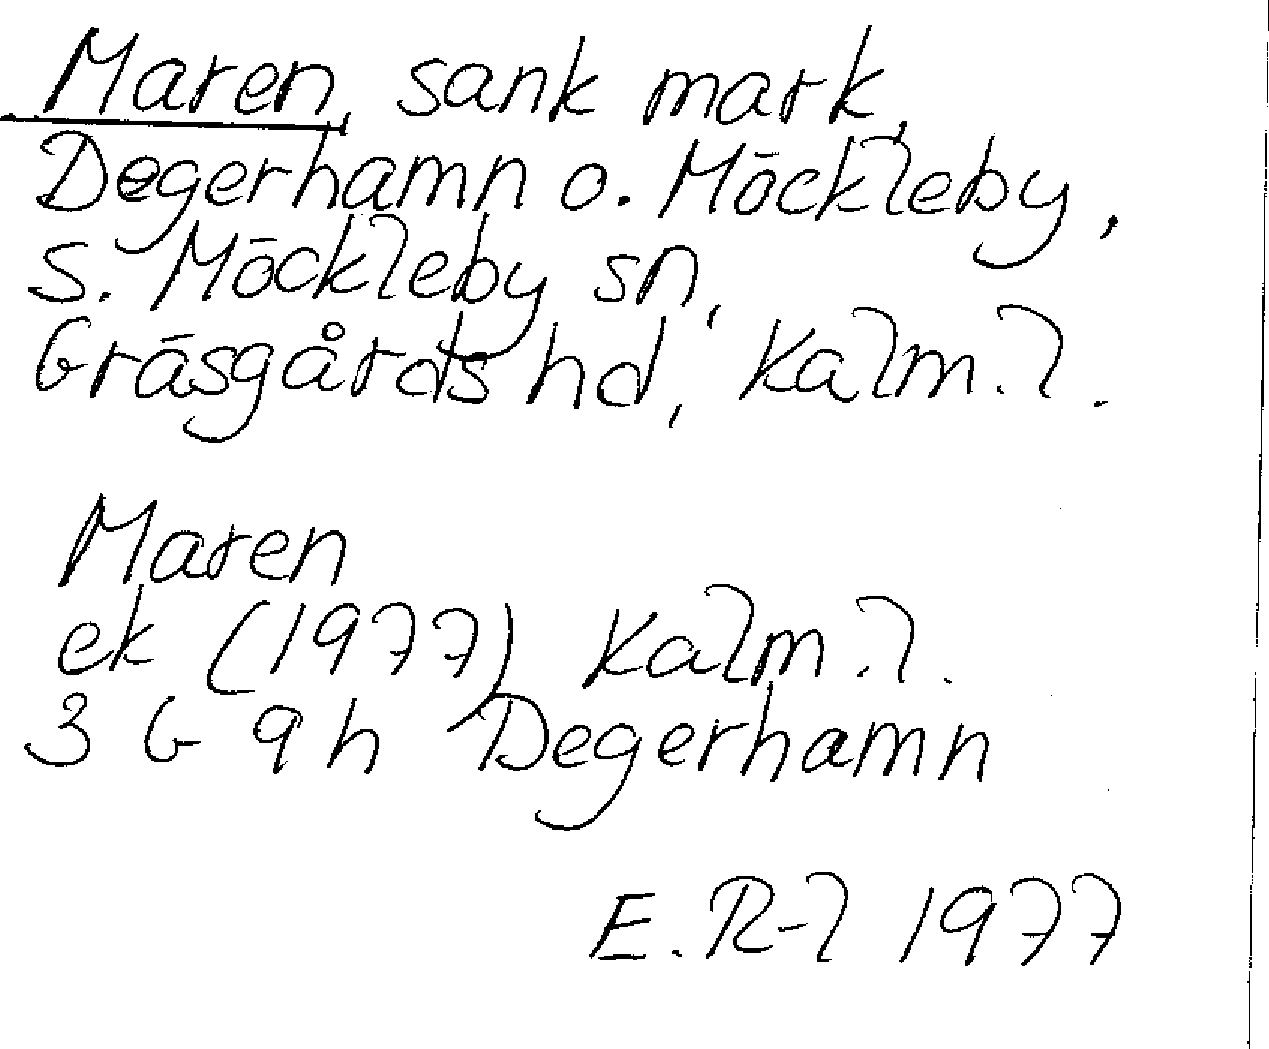 Maren, sank mark,
Degerhamn o. Möckleby,
S. Möckleby sn,
Gräsgårds hd, Kalm. l.
Maren
ek (1977) Kalm. l.
3 G 9 h Degerhamn
E. R-l 1977